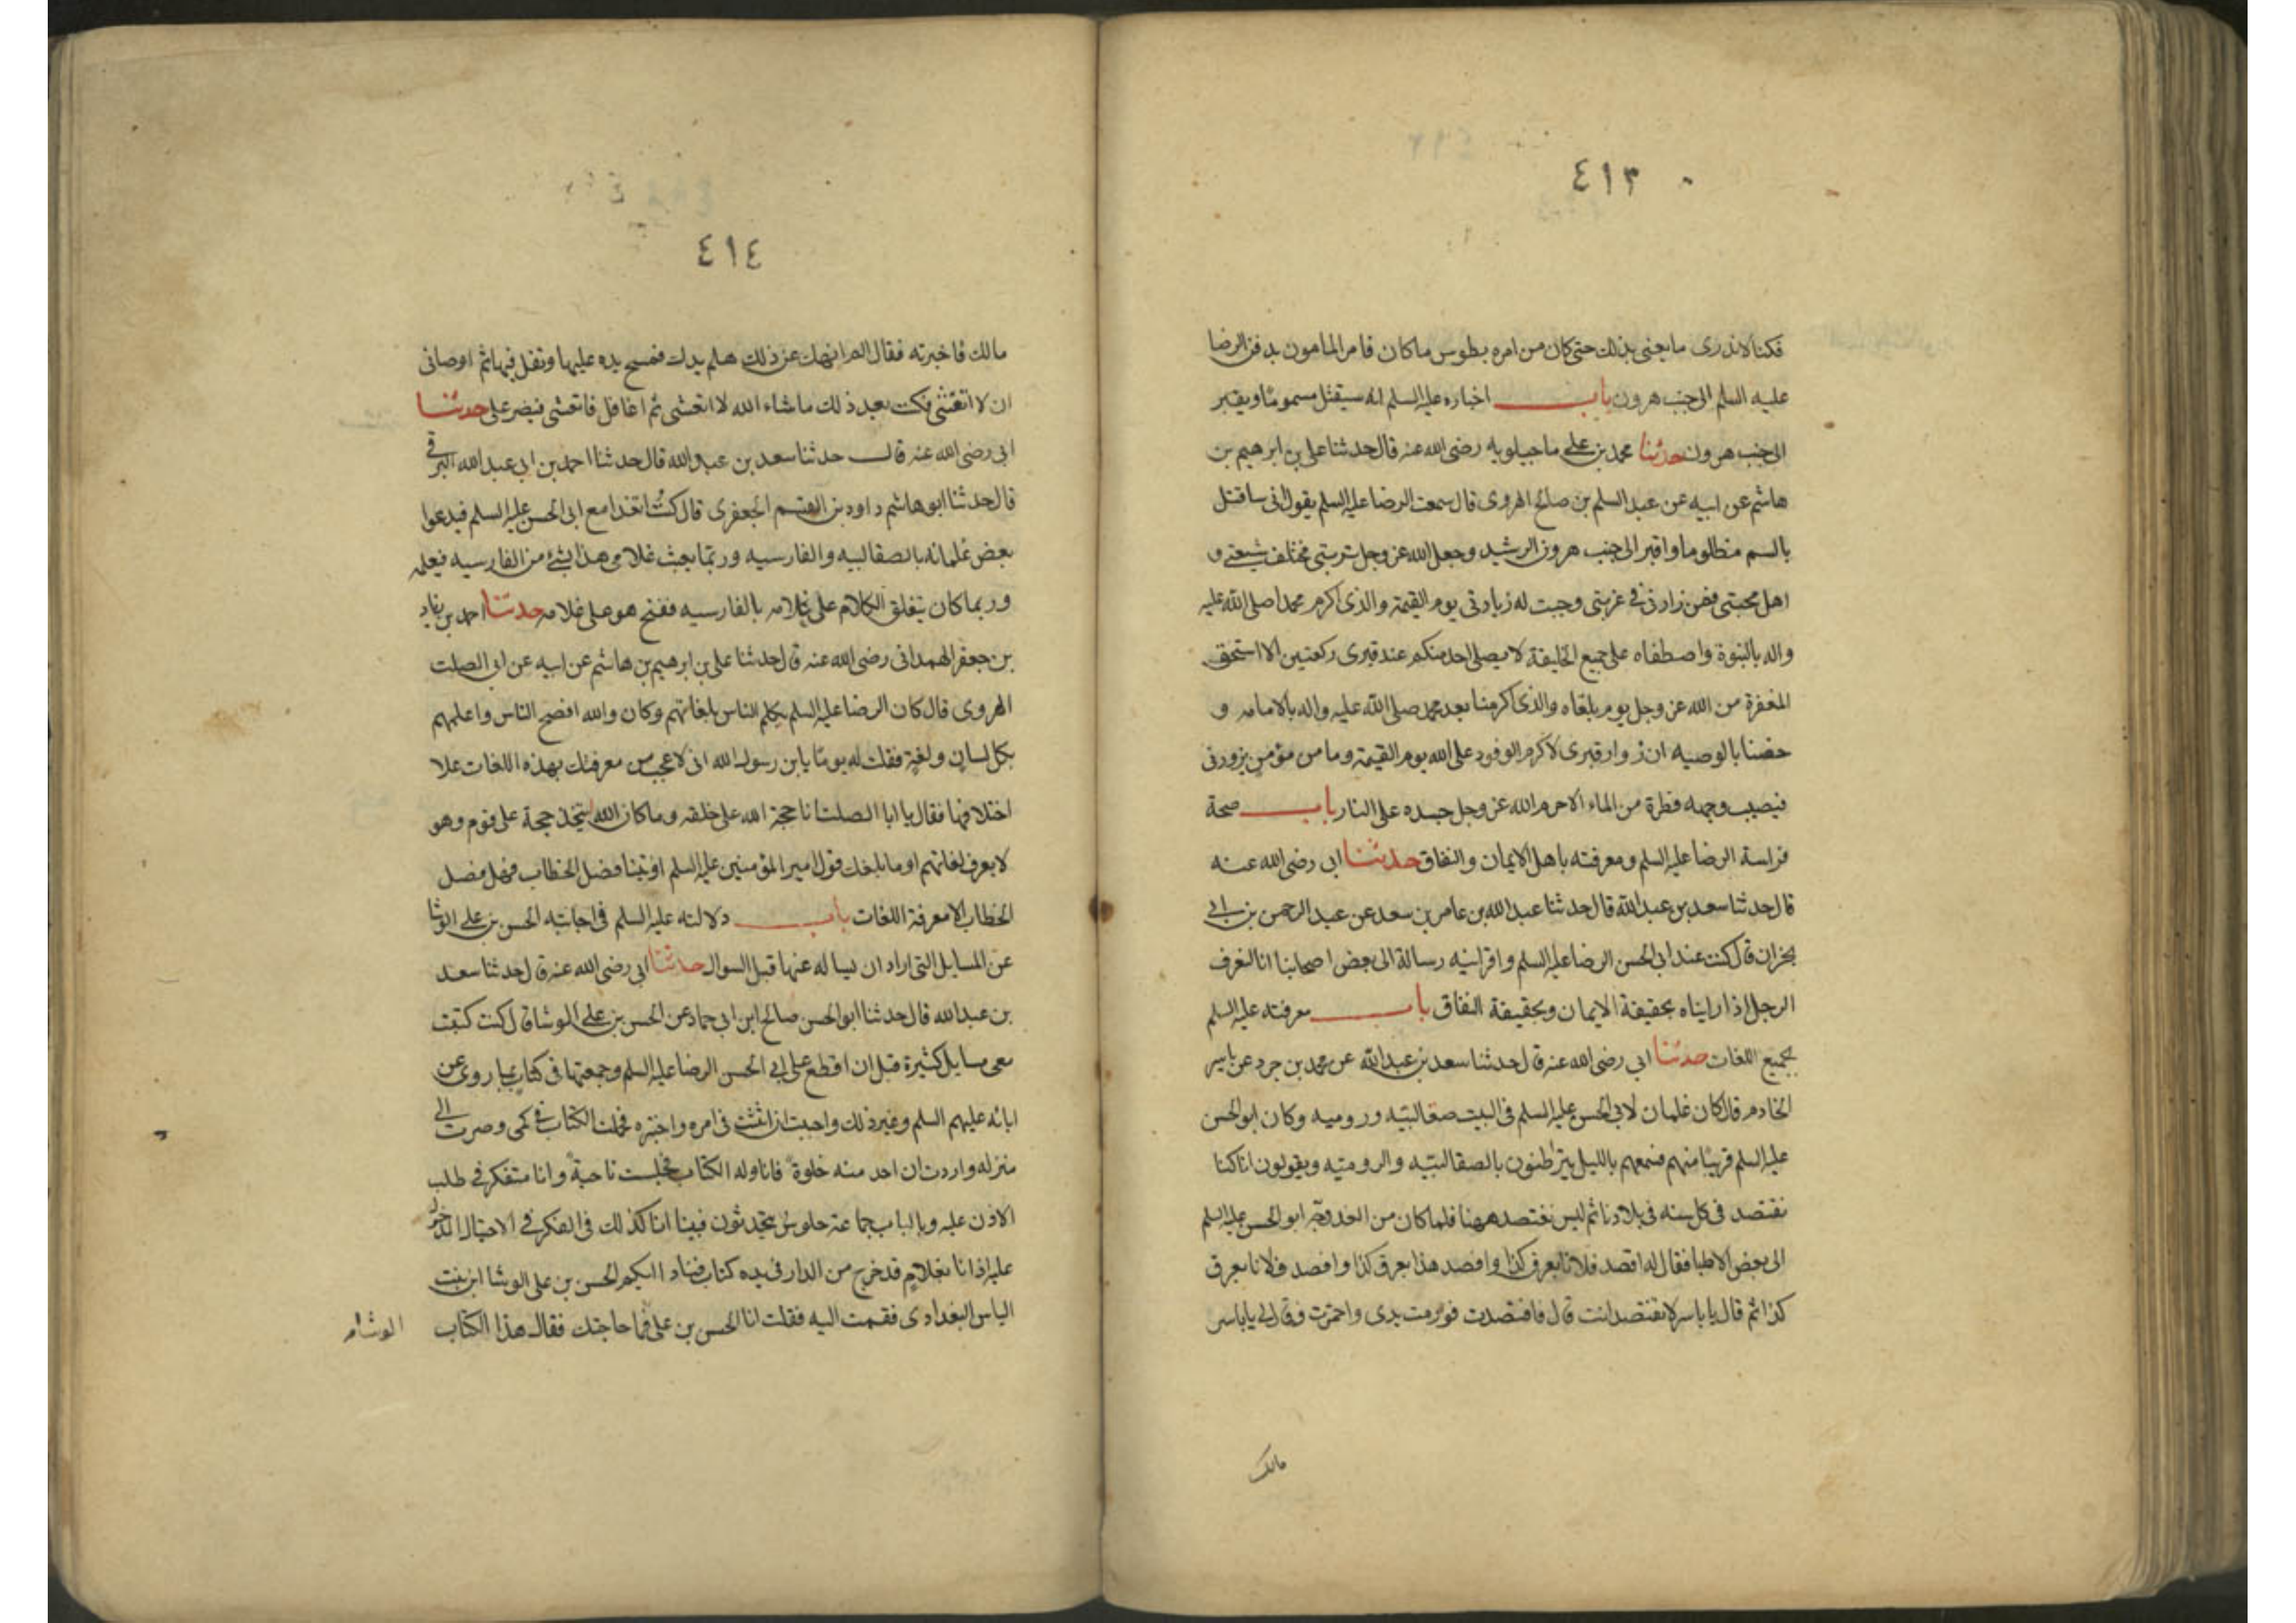 ٤١٣
فكنا لاندرى ما يعنى بذلك حتى كان من امره بطوس ماكان فامر المامون بدفن الرضا
عليه السلم الى جنب هرون باب اخباره عليه السلم انه سيقتل مسموما ويقبر
الى جنب هرون حدثنا محمد بن على ماجيلويه رضى الله عنه قال حدثنا على بن ابرهيم بن
هاشم عن ابيه عن عبد السلم بن صالح الهروى قال سمعت الرضا عليه السلم يقول انى ساقتل
بالسم مظلوما واقبر الى جنب هرون الرشيد وجعل الله عز وجل تربتى مختلف شيعتى و
اهل محبتى فمن زارنى فى غربتى وجبت له زيارتى يوم القيمة والذى اكرم محمدا صلى الله عليه
واله بالنبوة واصطفاه على جميع الخليقة لا يصلى احد منكم عند قبرى ركعتين الا استحق
المغفرة من الله عز وجل يوم يلقاه والذى اكرمنا بعد محمد صلى الله عليه واله بالامامه و
خصنا بالوصيه ان زوار قبرى لاكرم الوفود على الله يوم القيمة وما من مؤمن يزورنى
فيصيب وجهه قطرة من الماء الا حرم الله عز وجل جسده على النار باب صحة
فراسة الرضا عليه السلم ومعرفته باهل الايمان والنفاق حدثنا ابى رضى الله عنه
قال حدثنا سعد بن عبد الله قال حدثنا عبد الله بن عامر بن سعد عن عبد الرحمن بن ابى
نجران قال كنت عند ابى الحسن الرضا عليه السلم واقرانيه رسالة الى بعض اصحابنا انا لنعرف
الرجل اذا رايناه بحقيقة الايمان وبحقيقة النفاق باب معرفته عليه السلم
بجميع اللغات حدثنا ابى رضى الله عنه قال حدثنا سعد بن عبد الله عن محمد بن جرد عن ياسر
الخادم قال كان غلمان لابى الحسن عليه السلم فى البيت صقالبيه وروميه وكان ابو الحسن
عليه السلم قريبا منهم فسمعهم بالليل يتراطنون بالصقالبيه والروميه ويقولون انا كنا
نفتصد فى كل سنه فى بلادنا ثم ليس نفتصد ههنا فلما كان من الغد وجه ابو الحسن عليه السلم
الى بعض الاطبا فقال له افصد فلانا بعرق كذا وافصد هذا بعرق كذا وافصد فلانا بعرق
كذا ثم قال يا ياسر لا تفتصد انت قال فافتصدت فورمت يدى واحمرت فقال لى يا ياسر
مالك
٤١٤
مالك فاخبرته فقال الم انهك عن ذلك هلم يدك فمسح يده عليها وتفل فيها ثم اوصانى
ان لا اتعشى فكنت بعد ذلك ماشاء الله لا اتعشى ثم اغافل فاتعشى فيضر على حدثنا
ابى رضى الله عنه قال حدثنا سعد بن عبد الله قال حدثنا احمد بن ابى عبد الله البرقى
قال حدثنا ابو هاشم داود بن القسم الجعفرى قال كنت اتغدا مع ابى الحسن عليه السلم فيدعوا
بعض غلمانه بالصقالبيه والفارسيه وربما بعثت غلامى هذا بشئ من الفارسيه فيعلمه
وربما كان ينغلق الكلام على غلامه بالفارسيه فيفتح هو على غلامه حدثنا احمد بن زياد
بن جعفر الهمدانى رضى الله عنه قال حدثنا على بن ابرهيم بن هاشم عن ابيه عن ابى الصلت
الهروى قال كان الرضا عليه السلم يكلم الناس بلغاتهم وكان والله افصح الناس واعلمهم
بكل لسان ولغة فقلت له يوما يابن رسول الله انى لاعجب من معرفتك بهذه اللغات على
اختلافها فقال يا ابا الصلت انا حجة الله على خلقه وما كان الله ليتخذ حجة على قوم وهو
لا يعرف لغاتهم او ما بلغك قول امير المؤمنين عليه السلم اوتينا فصل الخطاب فهل فصل
الخطاب الا معرفة اللغات باب دلالته عليه السلم فى اجابته الحسن بن على الوشا
عن المسايل التى اراد ان يساله عنها قبل السوال حدثنا ابى رضى الله عنه قال حدثنا سعد
بن عبد الله قال حدثنا ابو الحسن صالح ابن ابى حماد عن الحسن بن على الوشا قال كنت كتبت
معى مسايل كثيرة قبل ان اقطع على ابى الحسن الرضا عليه السلم وجمعتها فى كتاب مما روى عن
ابائه عليهم السلم وغير ذلك واحببت ان اتثبت فى امره واختبره فحملت الكتاب فى كمى وصرت الى
منزله واردت ان اخذ منه خلوة فاناوله الكتاب فجلست ناحية وانا متفكر فى طلب
الاذن عليه وبالباب جماعة جلوس يتحدثون فبينا انا كذلك فى الفكر فى الاحتيال للدخول
عليه اذا انا بغلام قد خرج من الدار فى يده كتاب فنادا ايكم الحسن بن على الوشا ابن بنت
الياس البغدادى فقمت اليه فقلت انا الحسن بن على فما حاجتك فقال هذا الكتاب